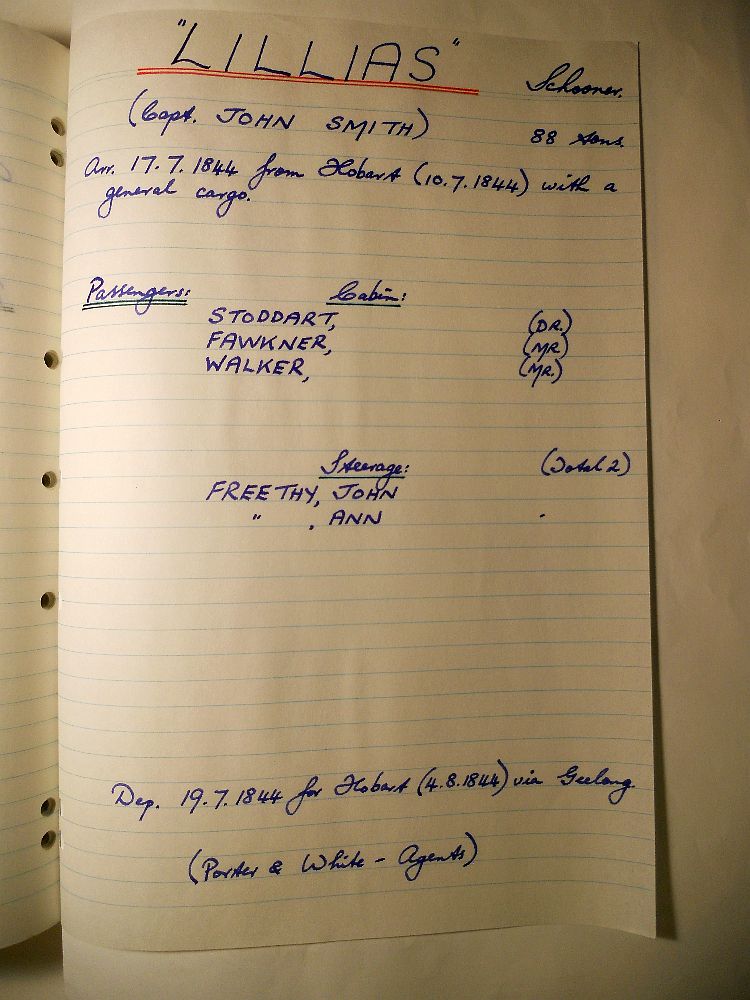 "LILLIAS"
Schooner.
(Capt. JOHN SMITH)
88 tons.
Arr. 17.7.1844 from Hobart (10.7.1844) with a
general cargo.
Passengers: Cabin:
STODDART, (DR.)
FAWKNER, (MR)
WALKER, (MR.)
Steerage: (Total 2)
FREETHY, JOHN
" , ANN
Dep. 19.7.1844 for Hobart (4.8.1844) via Geelong.
(Porter & White - Agents)